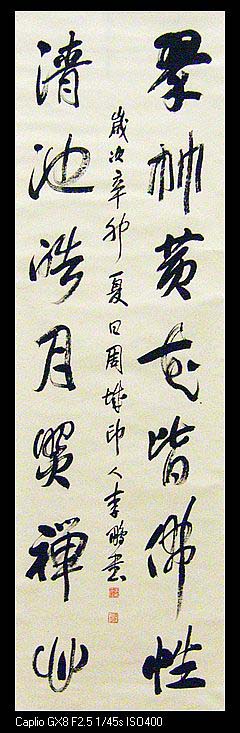 翠竹黄花皆佛性
清池皓月照禪心
歲次辛卯夏日周城印人李鵬書
Caplio GX8 F2.5 1/45s ISO400